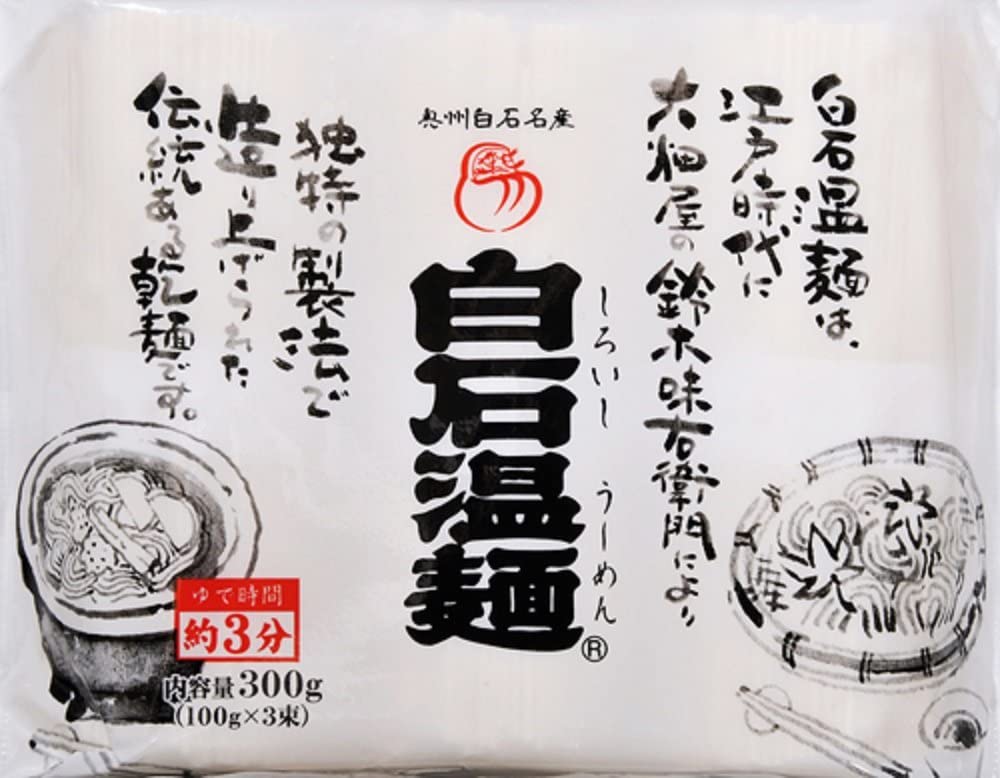 白石温麺は、
江戸時代に
大畑屋の鈴木味右衛門により
奥州白石名産
白石温麺®
しろいし うーめん
独特の製法で
造り上げられた
伝統ある乾麺です。
ゆで時間
約3分
内容量300g
(100g×3束)